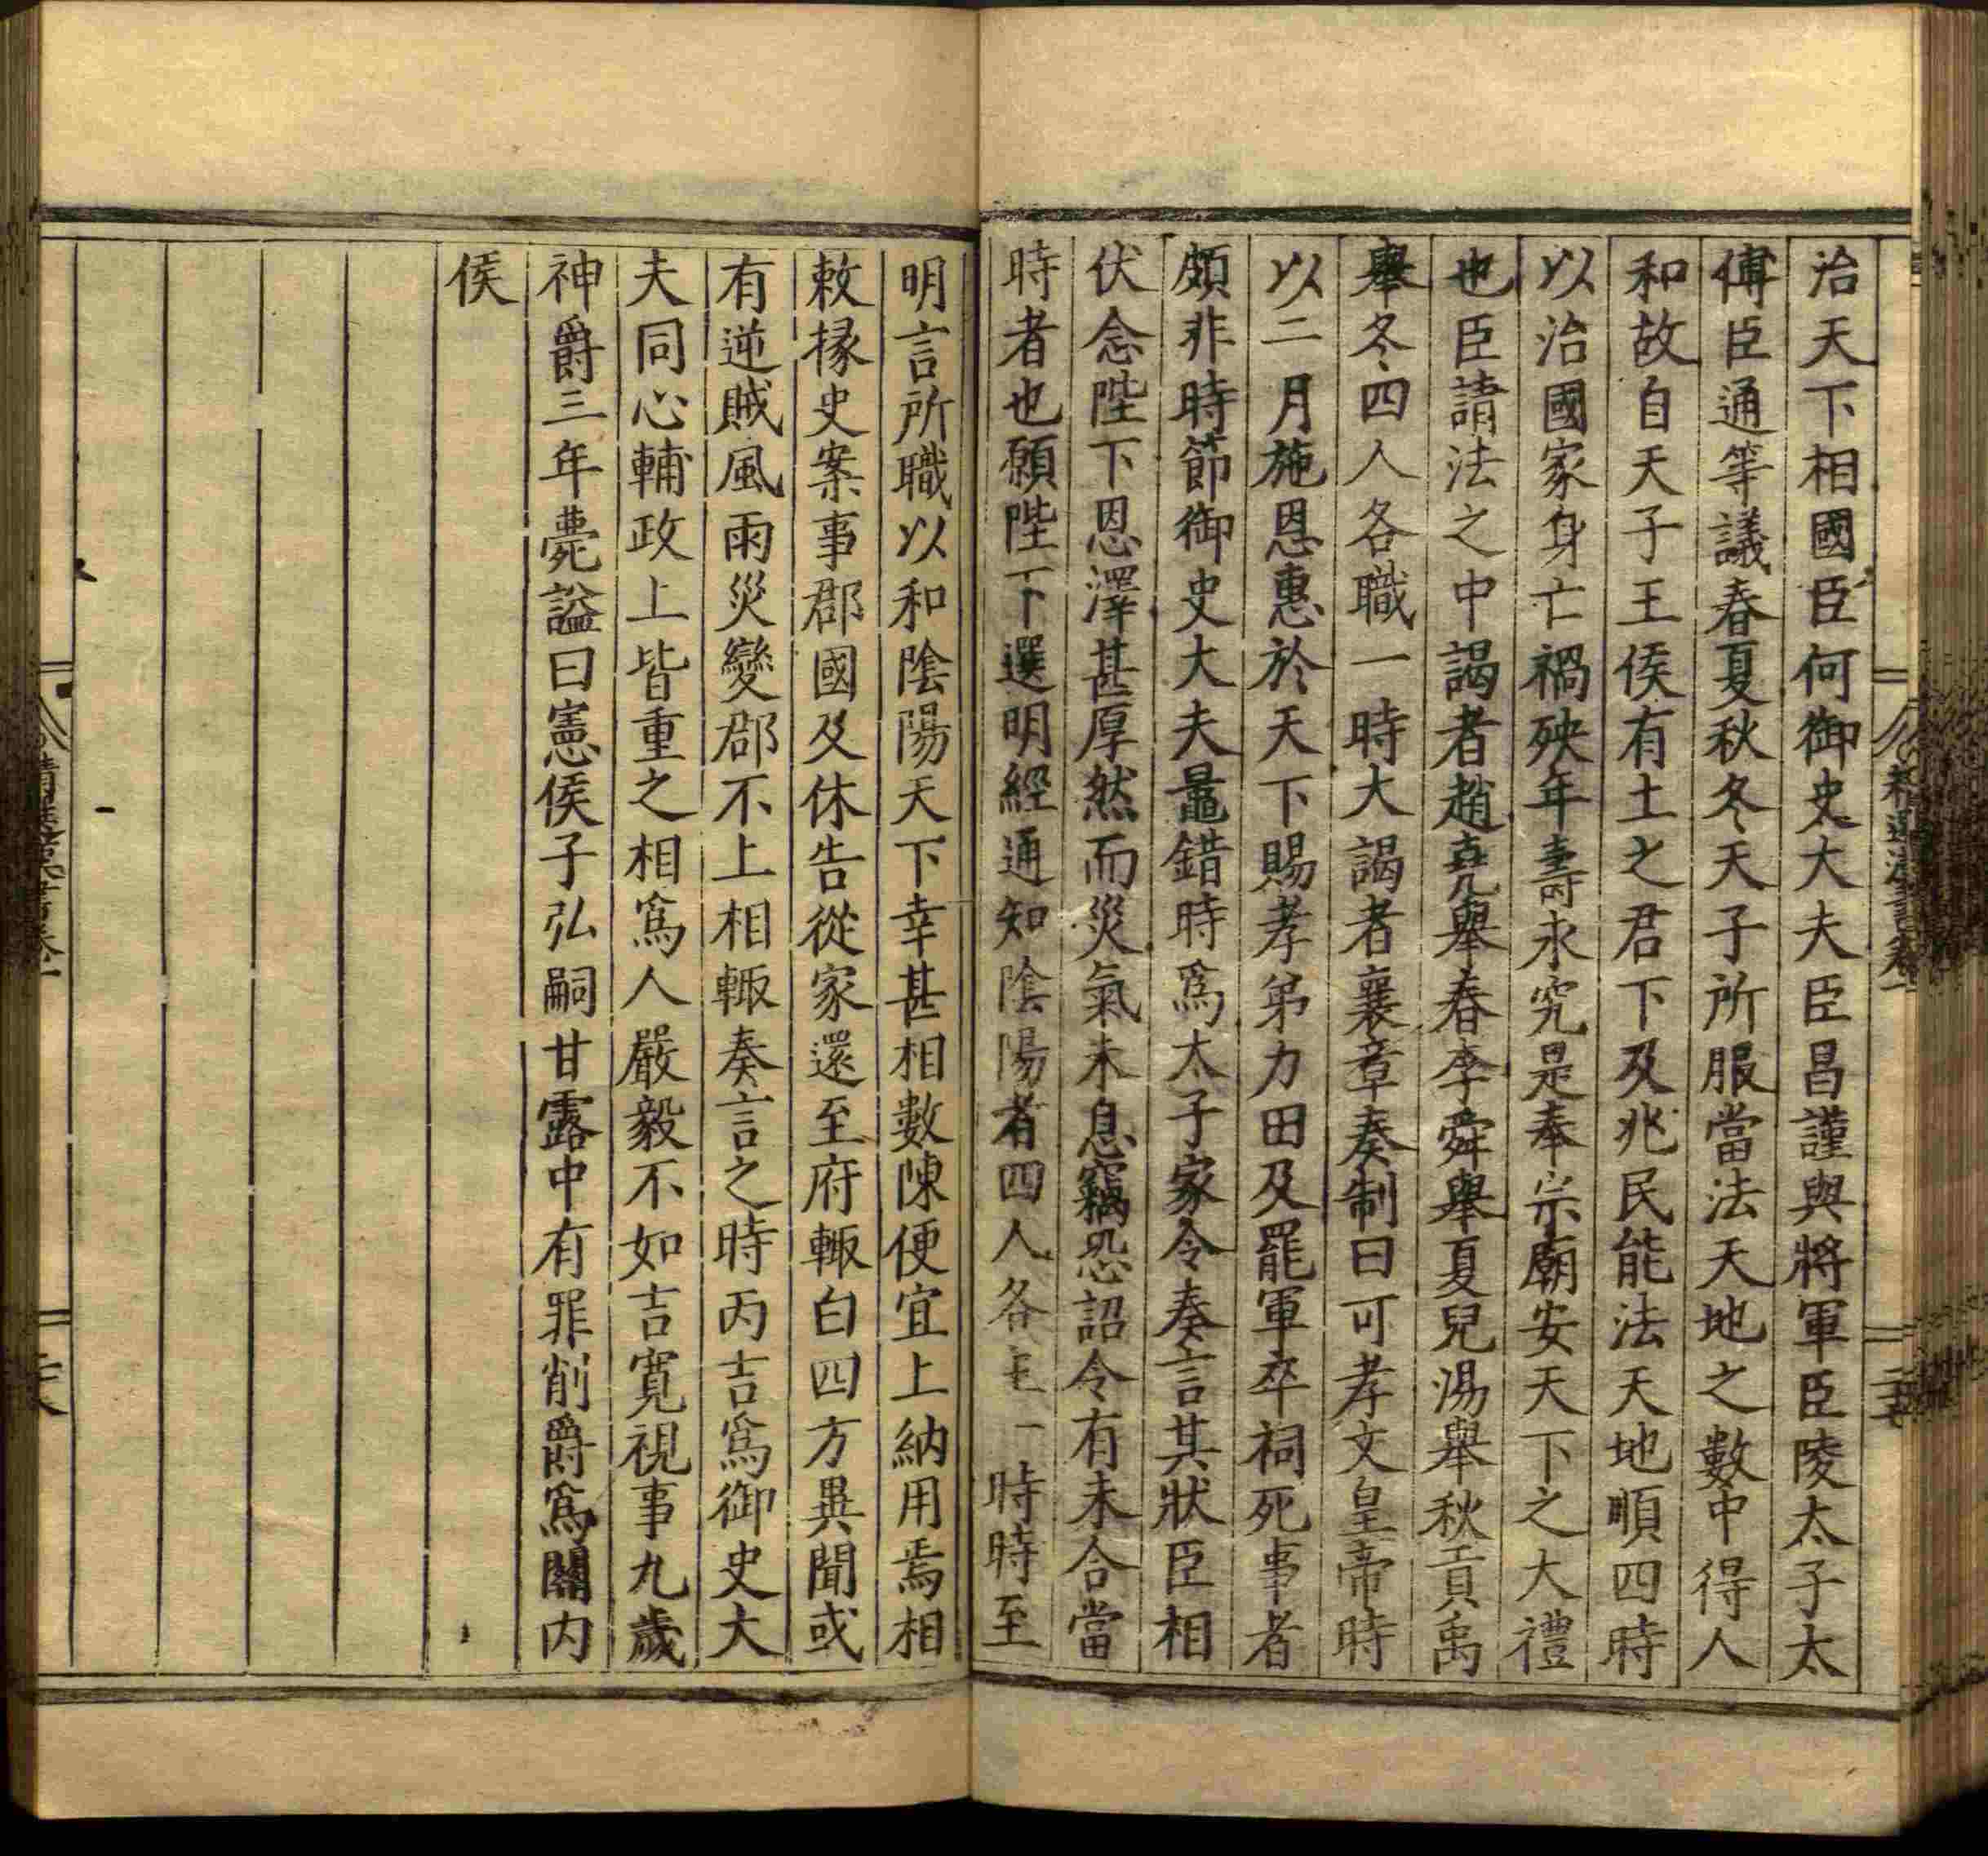 治天下相國臣何御史大夫臣昌謹與將軍臣陵太子太
傅臣通等議春夏秋冬天子所服當法天地之數中得人
和故自天子王侯有土之君下及兆民能法天地順四時
以治國家身亡禍殃年壽永究是奉宗廟安天下之大禮
也臣請法之中謁者趙堯舉春李舜舉夏兒湯舉秋貢禹
舉冬四人各職一時大謁者襄章奏制曰可孝文皇帝時
以二月施恩惠於天下賜孝弟力田及罷軍卒祠死事者
頗非時節御史大夫鼂錯時爲太子家令奏言其狀臣相
伏念陛下恩澤甚厚然而災氣未息竊恐詔令有未合當
時者也願陛下選明經通知陰陽者四人各主一時時至
明言所職以和陰陽天下幸甚相數陳便宜上納用焉相
敕掾史案事郡國及休告從家還至府輒白四方異聞或
有逆賊風雨災變郡不上相輒奏言之時丙吉爲御史大
夫同心輔政上皆重之相爲人嚴毅不如吉寬視事九歲
神爵三年薨謚曰憲侯子弘嗣甘露中有罪削爵爲關内
侯